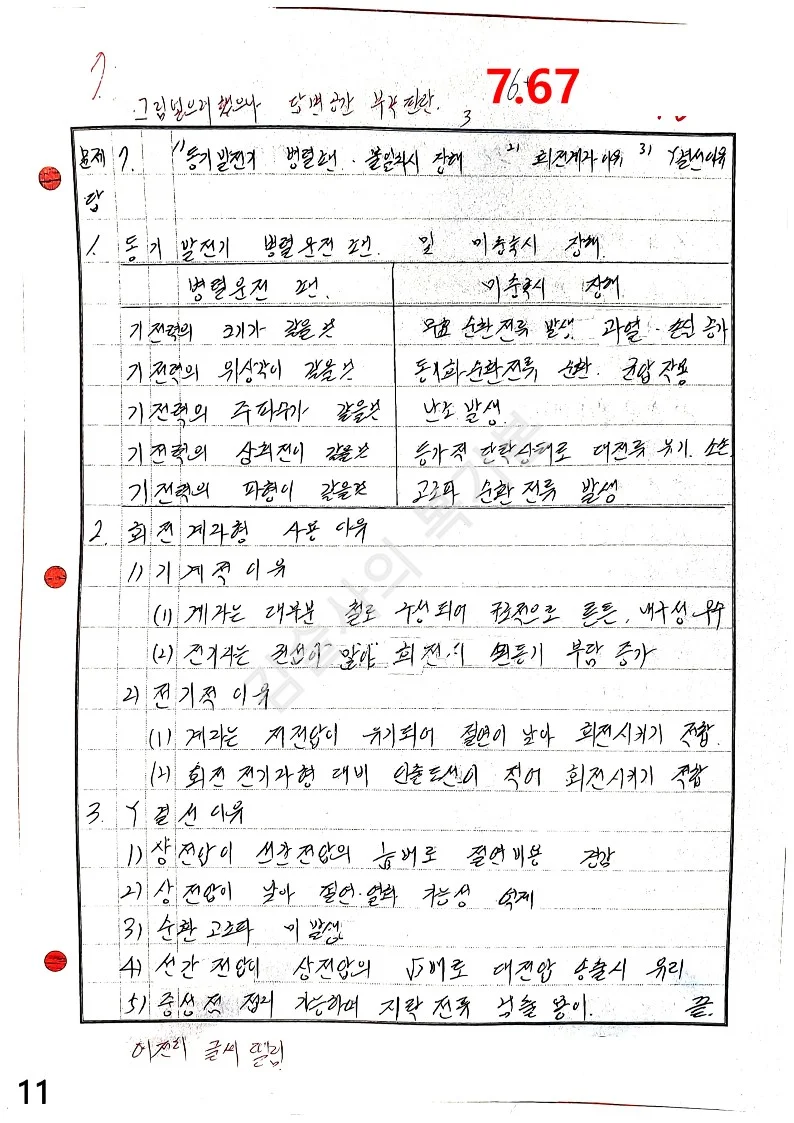 7.
7.67
그림넣으려 했으나 답변공간 부족판단.
3
문제 7. 1) 동기발전기 병렬조건·불일치시 장해 2) 회전계자 이유 3) Y결선이유
답
1. 동기 발전기 병렬운전 조건. 및 미충족시 장해.
병렬운전 조건. 미충족시 장해
기전력의 크기가 같을것 무효 순환전류 발생. 과열·손실 증가
기전력의 위상각이 같을것 동기화 순환전류 순환. 균압작용
기전력의 주파수가 같을것 난조 발생
기전력의 상회전이 같을것 등가적 단락상태로 대전류 유기. 소손.
기전력의 파형이 같을것 고조파 순환전류 발생
2. 회전계자형 사용 이유
1) 기계적 이유
(1) 계자는 대부분 철로 구성되어 구조적으로 튼튼, 내구성 우수
(2) 전기자는 권선이 많아 회전시 원동기 부담 증가
2) 전기적 이유
(1) 계자는 저전압이 유기되어 절연이 낮아 회전시키기 적합.
(2) 회전 전기자형 대비 인출도선이 적어 회전시키기 적합
3. Y 결선 이유
1) 상전압이 선간전압의 1/√3배로 절연비용 경감
2) 상전압이 낮아 절연·열화 가능성 억제
3) 순환 고조파 미발생
4) 선간전압이 상전압의 √3배로 대전압 송출시 유리
5) 중성점 접지 가능하며 지락전류 검출 용이. 끝.
여전히 글씨 딸림
김순사의 복기본
11